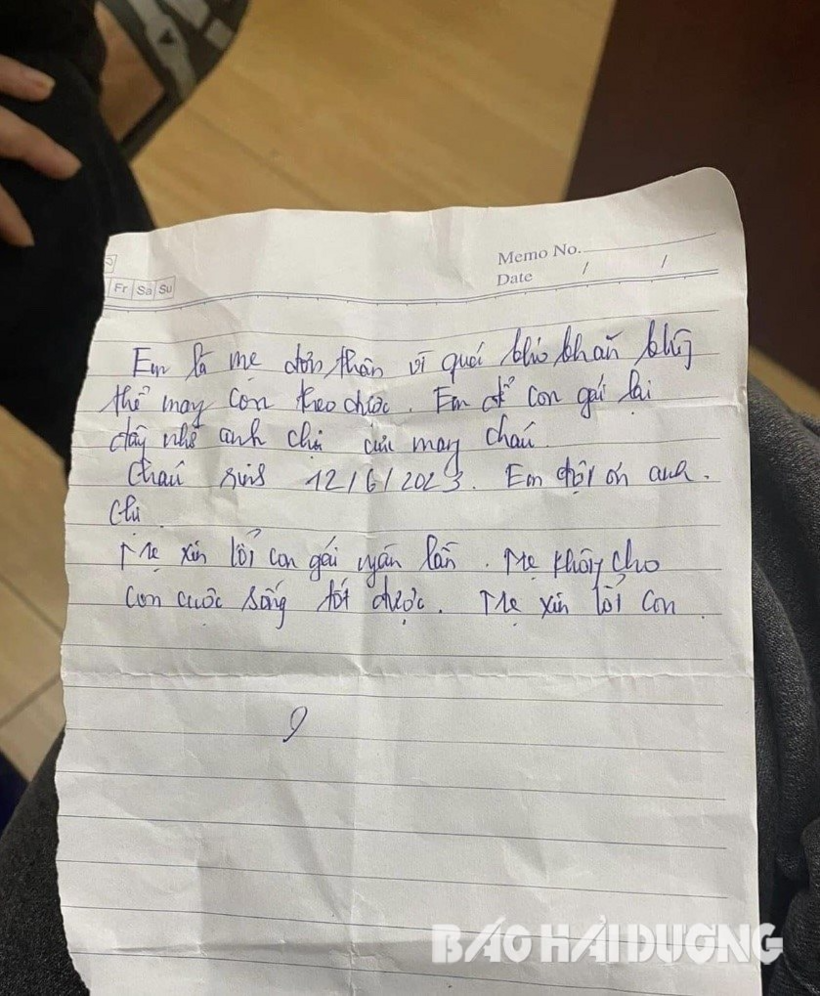 Memo No.
Date / /
Fr Sa Su
Em là mẹ đơn thân vì quá khó khăn
thể may con theo được. Em để con gái lại
đây nhờ anh chị cưu mang cháu.
Cháu sinh 12/6/2023. Em đội ơn anh.
chị
Mẹ xin lỗi con gái ngàn lần. Mẹ không cho
con cuộc sống tốt được. Mẹ xin lỗi con.
BÁO HẢI DƯƠNG